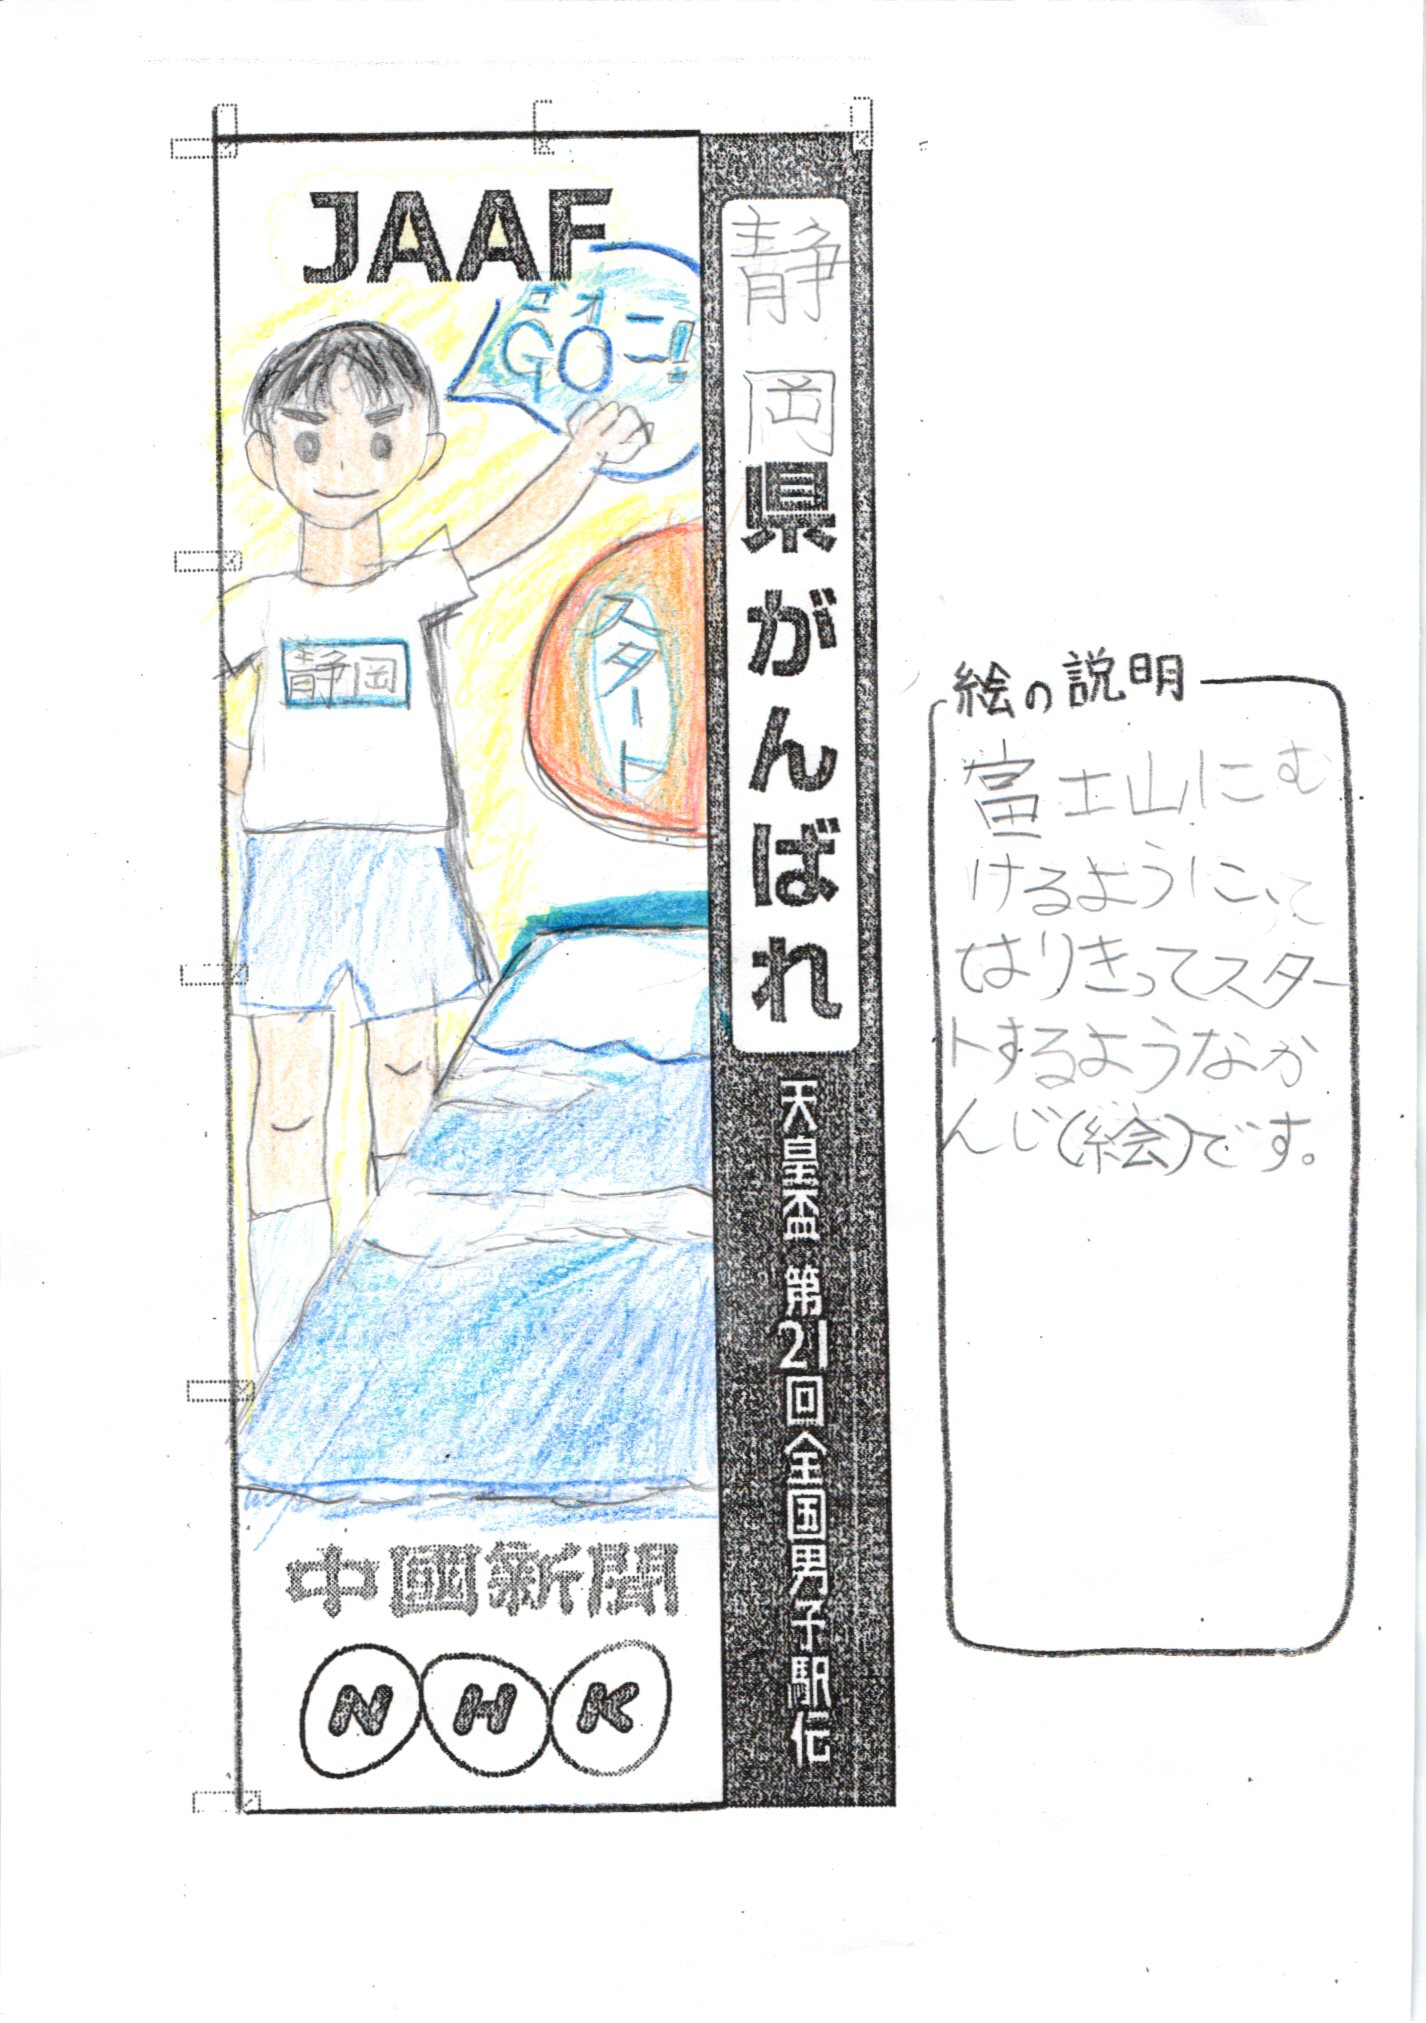 JAAF
ゴオ
GOー!
静岡
スタート
静岡県がんばれ
天皇盃 第21回全国男子駅伝
中國新聞
NHK
絵の説明
富士山にむ
けるようにって
はりきってスター
トするようなか
んじ(絵)です。